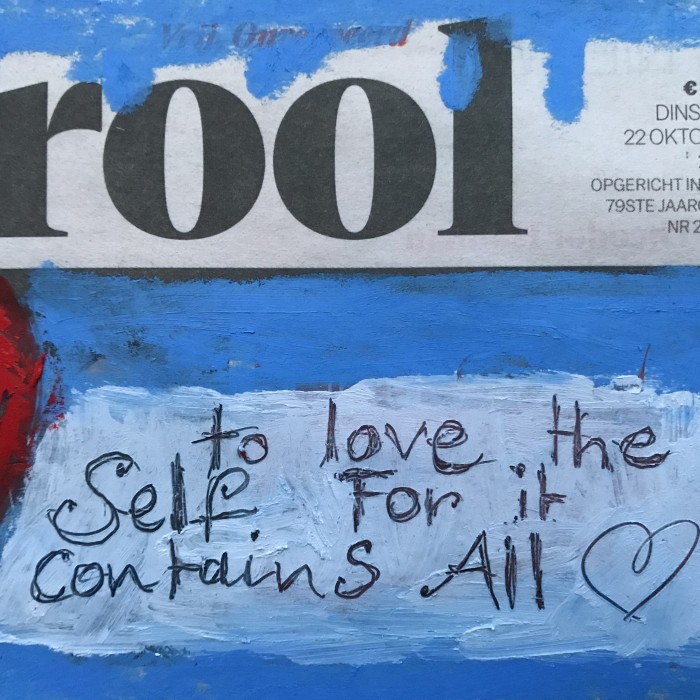 rool
€
DINS
22 OKTO
OPGERICHT IN
79STE JAARG
NR 2
to love the
Self For it
contains All